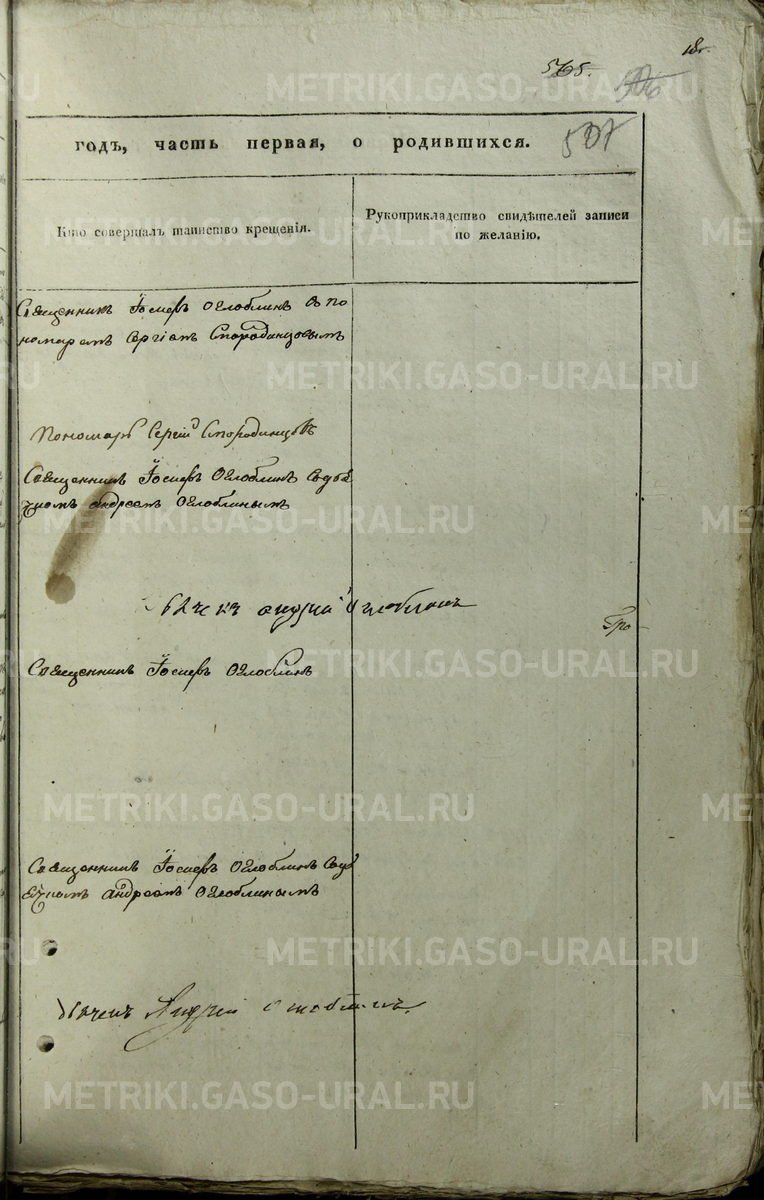 565.
507
годъ, часть первая, о родившихся.
Кто совершалъ таинство крещенія.
Рукоприкладство свидѣтелей записи
по желанію.
Священникъ Іосифъ Оглоблинъ съ по
номаремъ Сергіемъ Стародинцовымъ
Пономарь Сергій Стародинцовъ
Священникъ Іосифъ Оглоблинъ съ дья
чкомъ Андреемъ Оглоблинымъ
Андрей Оглоблинъ
Священникъ Іосифъ Оглоблинъ
Священникъ Іосифъ Оглоблинъ съ дья
чкомъ Андреемъ Оглоблинымъ
Дьячекъ Андрей Оглоблинъ
METRIKI.GASO-URAL.RU